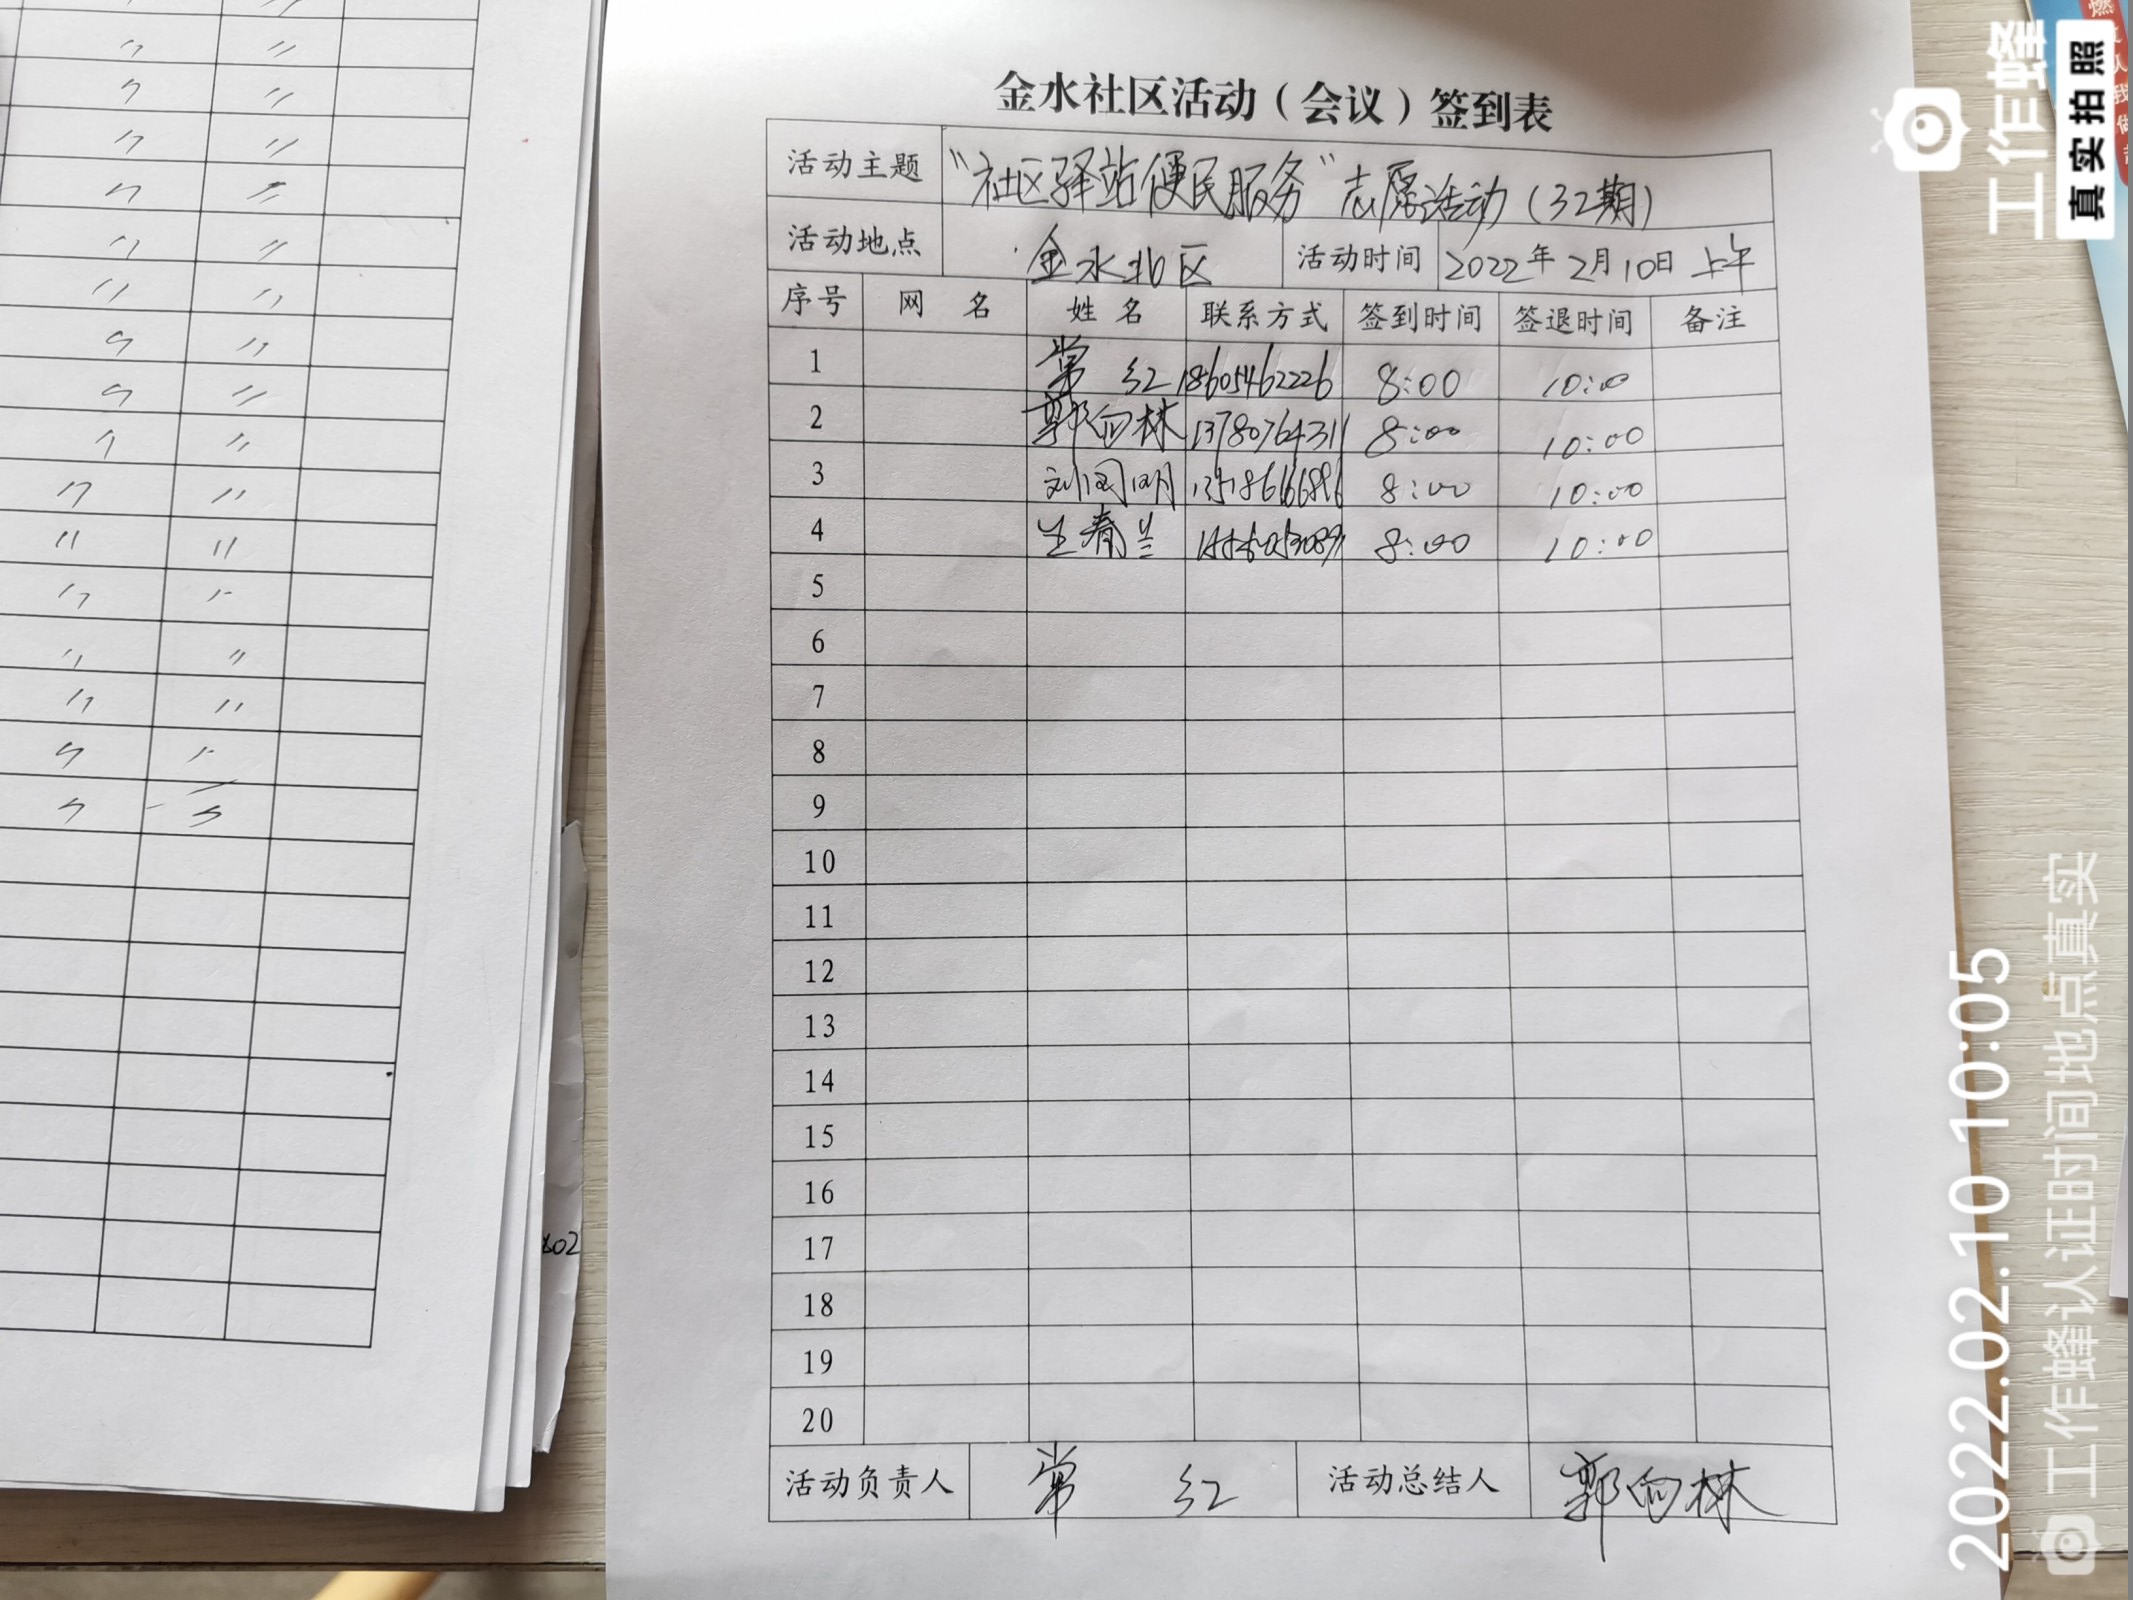 金水社区活动（会议）签到表
活动主题 “社区驿站便民服务”志愿活动（32期）
活动地点 金水北区 活动时间 2022年2月10日上午
序号 网 名 姓 名 联系方式 签到时间 签退时间 备注
1 常 红 18605462226 8:00 10:00
2 郭向林 13780764311 8:00 10:00
3 8:00 10:00
4 春兰 8:00 10:00
5
6
7
8
9
10
11
12
13
14
15
16
17
18
19
20
活动负责人 常 红 活动总结人 郭向林
602
工作蜂
真实拍照
2022.02.10 10:05
工作蜂认证时间地点真实